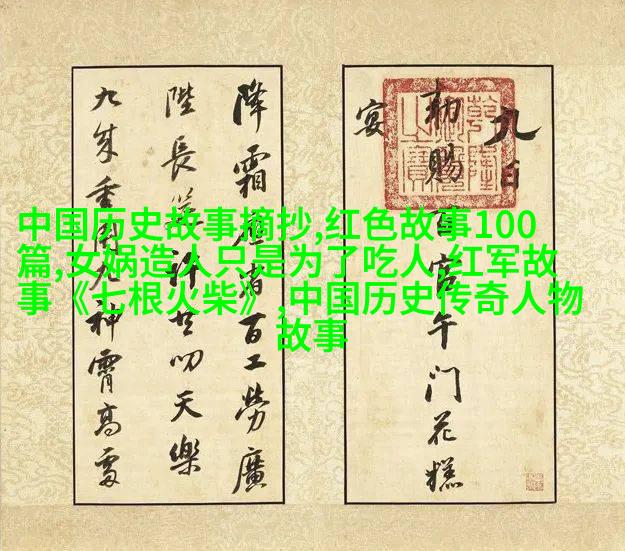 中国历史故事摘抄,红色故事100
篇,女娲造人只是为了吃人,红军故
事《七根火柴》,中国历史传奇人物
故事
九日
勅賜百官午門花糕
宴
降霜百工勞廣
陛長許共叨天樂
九重神霄高